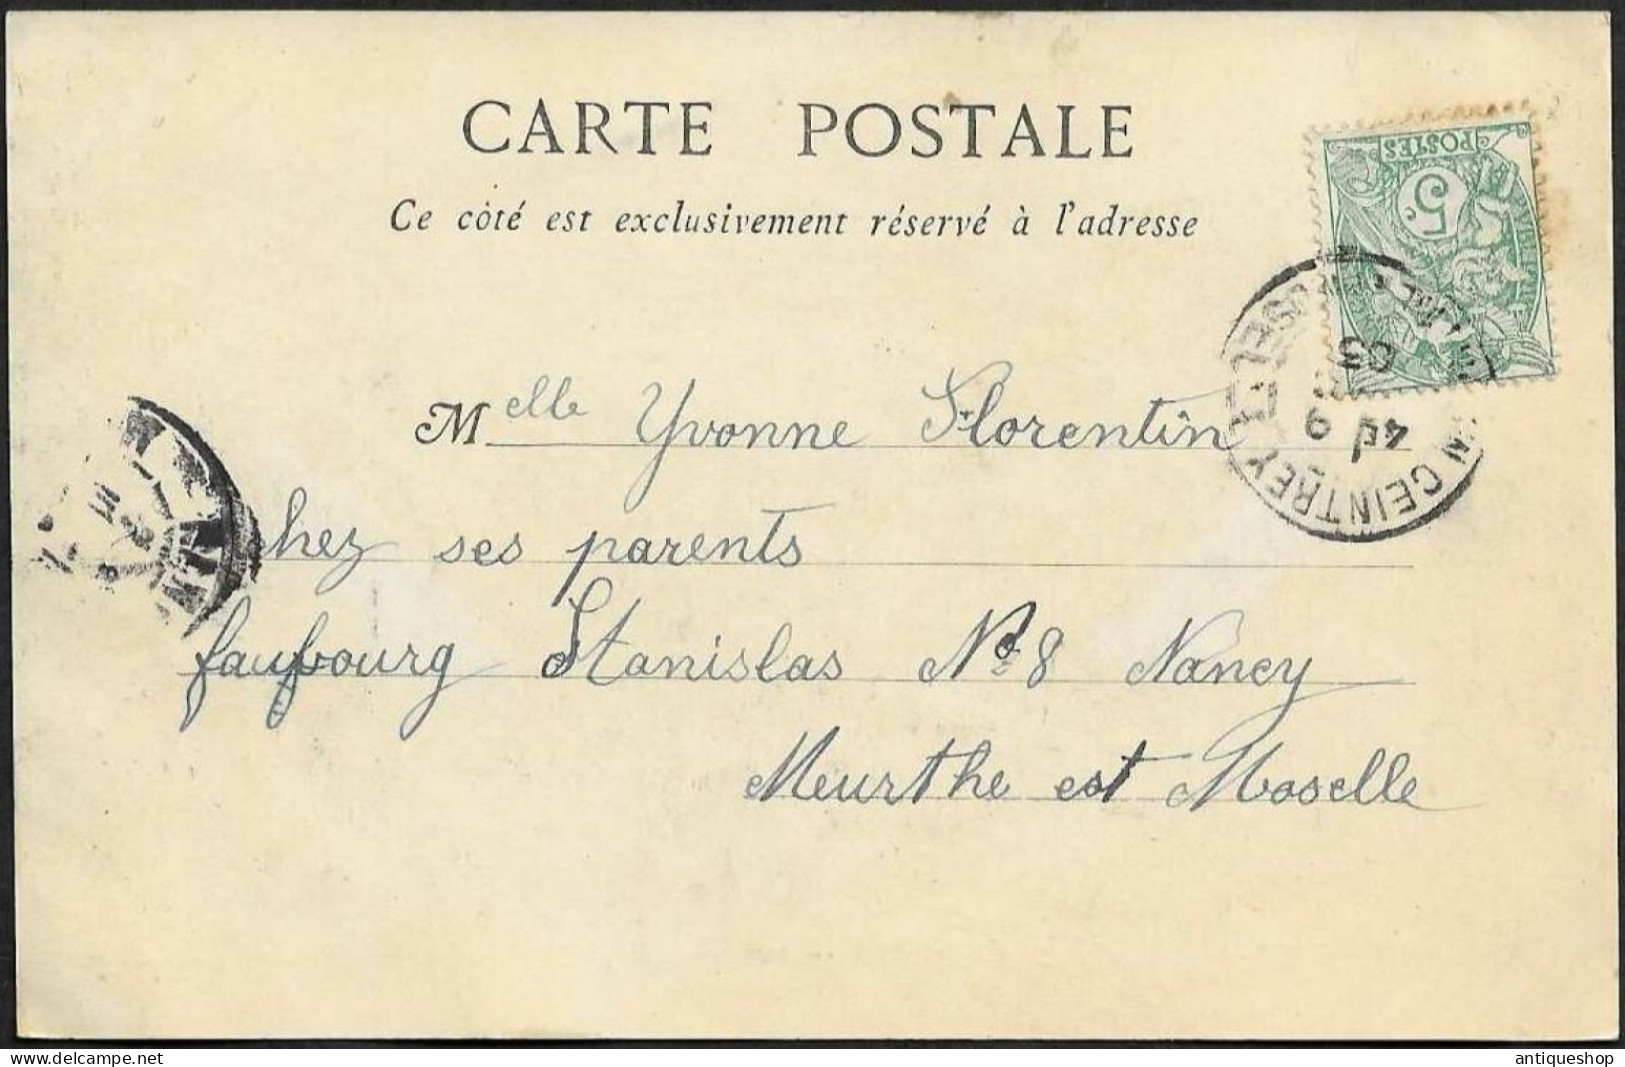 CARTE POSTALE
Ce côté est exclusivement réservé à l'adresse
POSTES
5c
CEINTREY
03
Melle Yvonne Florentin
chez ses parents
faubourg Stanislas No 8 Nancy
Meurthe est Moselle
delcampe.net
antiqueshop